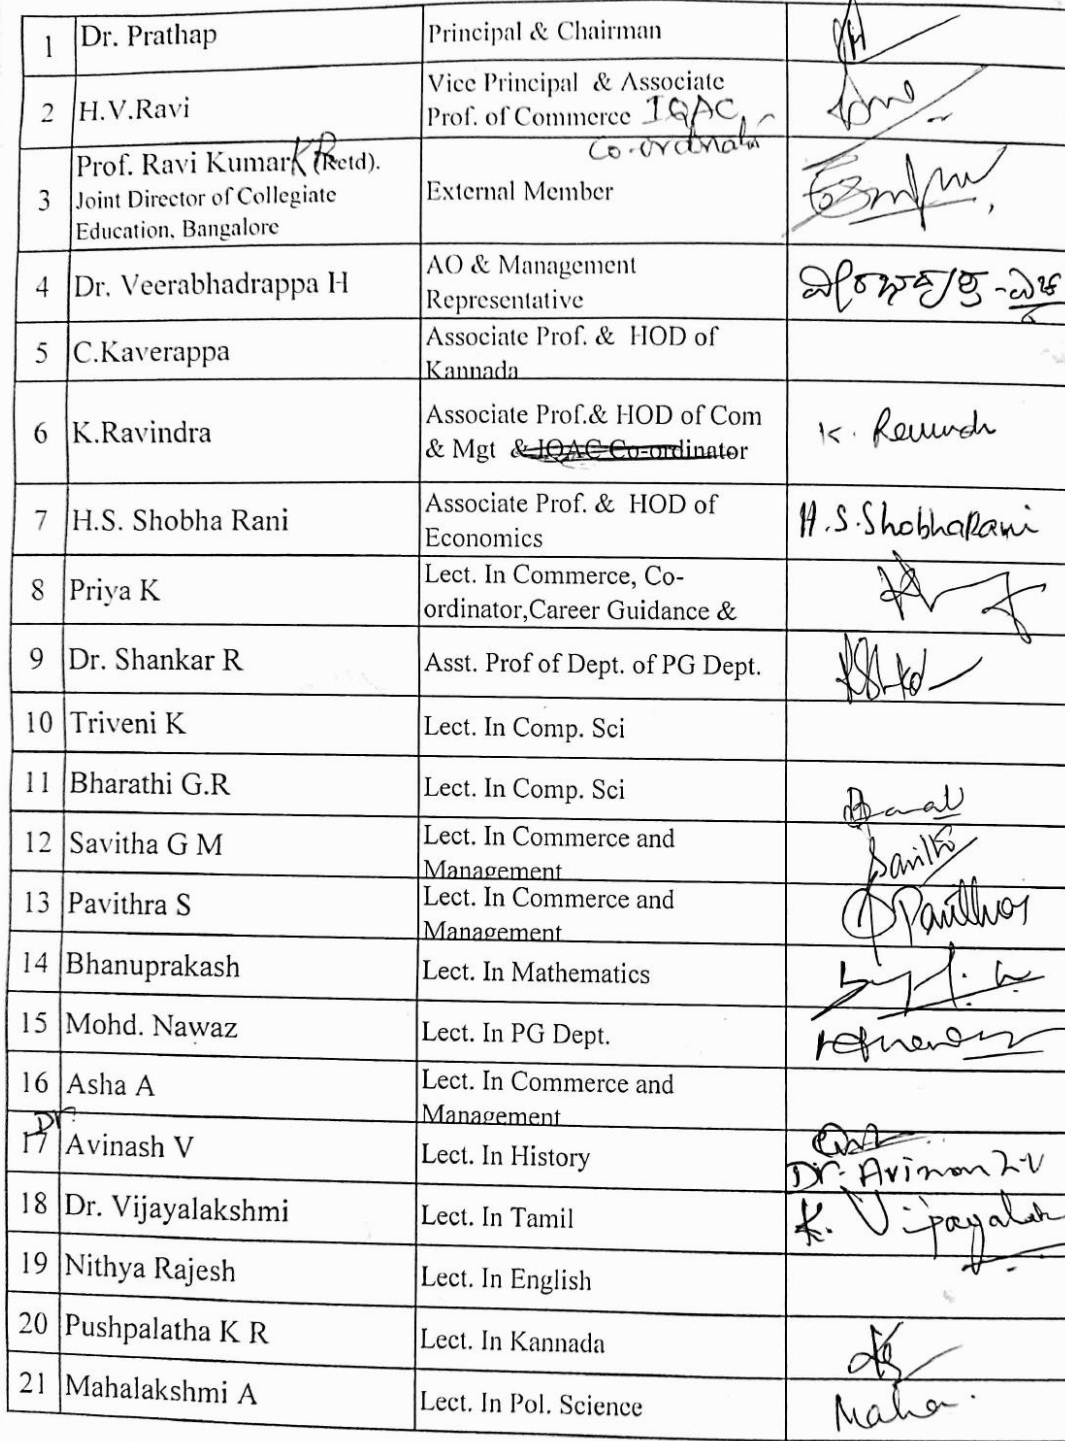 1 Dr. Prathap Principal & Chairman
2 H.V.Ravi Vice Principal & Associate
Prof. of Commerce IQAC
Co-ordinator
3 Prof. Ravi Kumar K R (Retd).
Joint Director of Collegiate
Education, Bangalore
External Member
4 Dr. Veerabhadrappa H AO & Management
Representative
5 C.Kaverappa Associate Prof. & HOD of
Kannada
6 K.Ravindra Associate Prof.& HOD of Com
& Mgt & IQAC Co-ordinator
K.
7 H.S. Shobha Rani Associate Prof. & HOD of
Economics
H.S.ShobhaRani
8 Priya K Lect. In Commerce, Co-
ordinator,Career Guidance &
9 Dr. Shankar R Asst. Prof of Dept. of PG Dept.
10 Triveni K Lect. In Comp. Sci
11 Bharathi G.R Lect. In Comp. Sci
12 Savitha G M Lect. In Commerce and
Management
13 Pavithra S Lect. In Commerce and
Management
14 Bhanuprakash Lect. In Mathematics
15 Mohd. Nawaz Lect. In PG Dept.
16 Asha A Lect. In Commerce and
Management
17 Dr. Avinash V Lect. In History
Dr. Avinash V
18 Dr. Vijayalakshmi Lect. In Tamil K.
19 Nithya Rajesh Lect. In English
20 Pushpalatha K R Lect. In Kannada
21 Mahalakshmi A Lect. In Pol. Science Maha